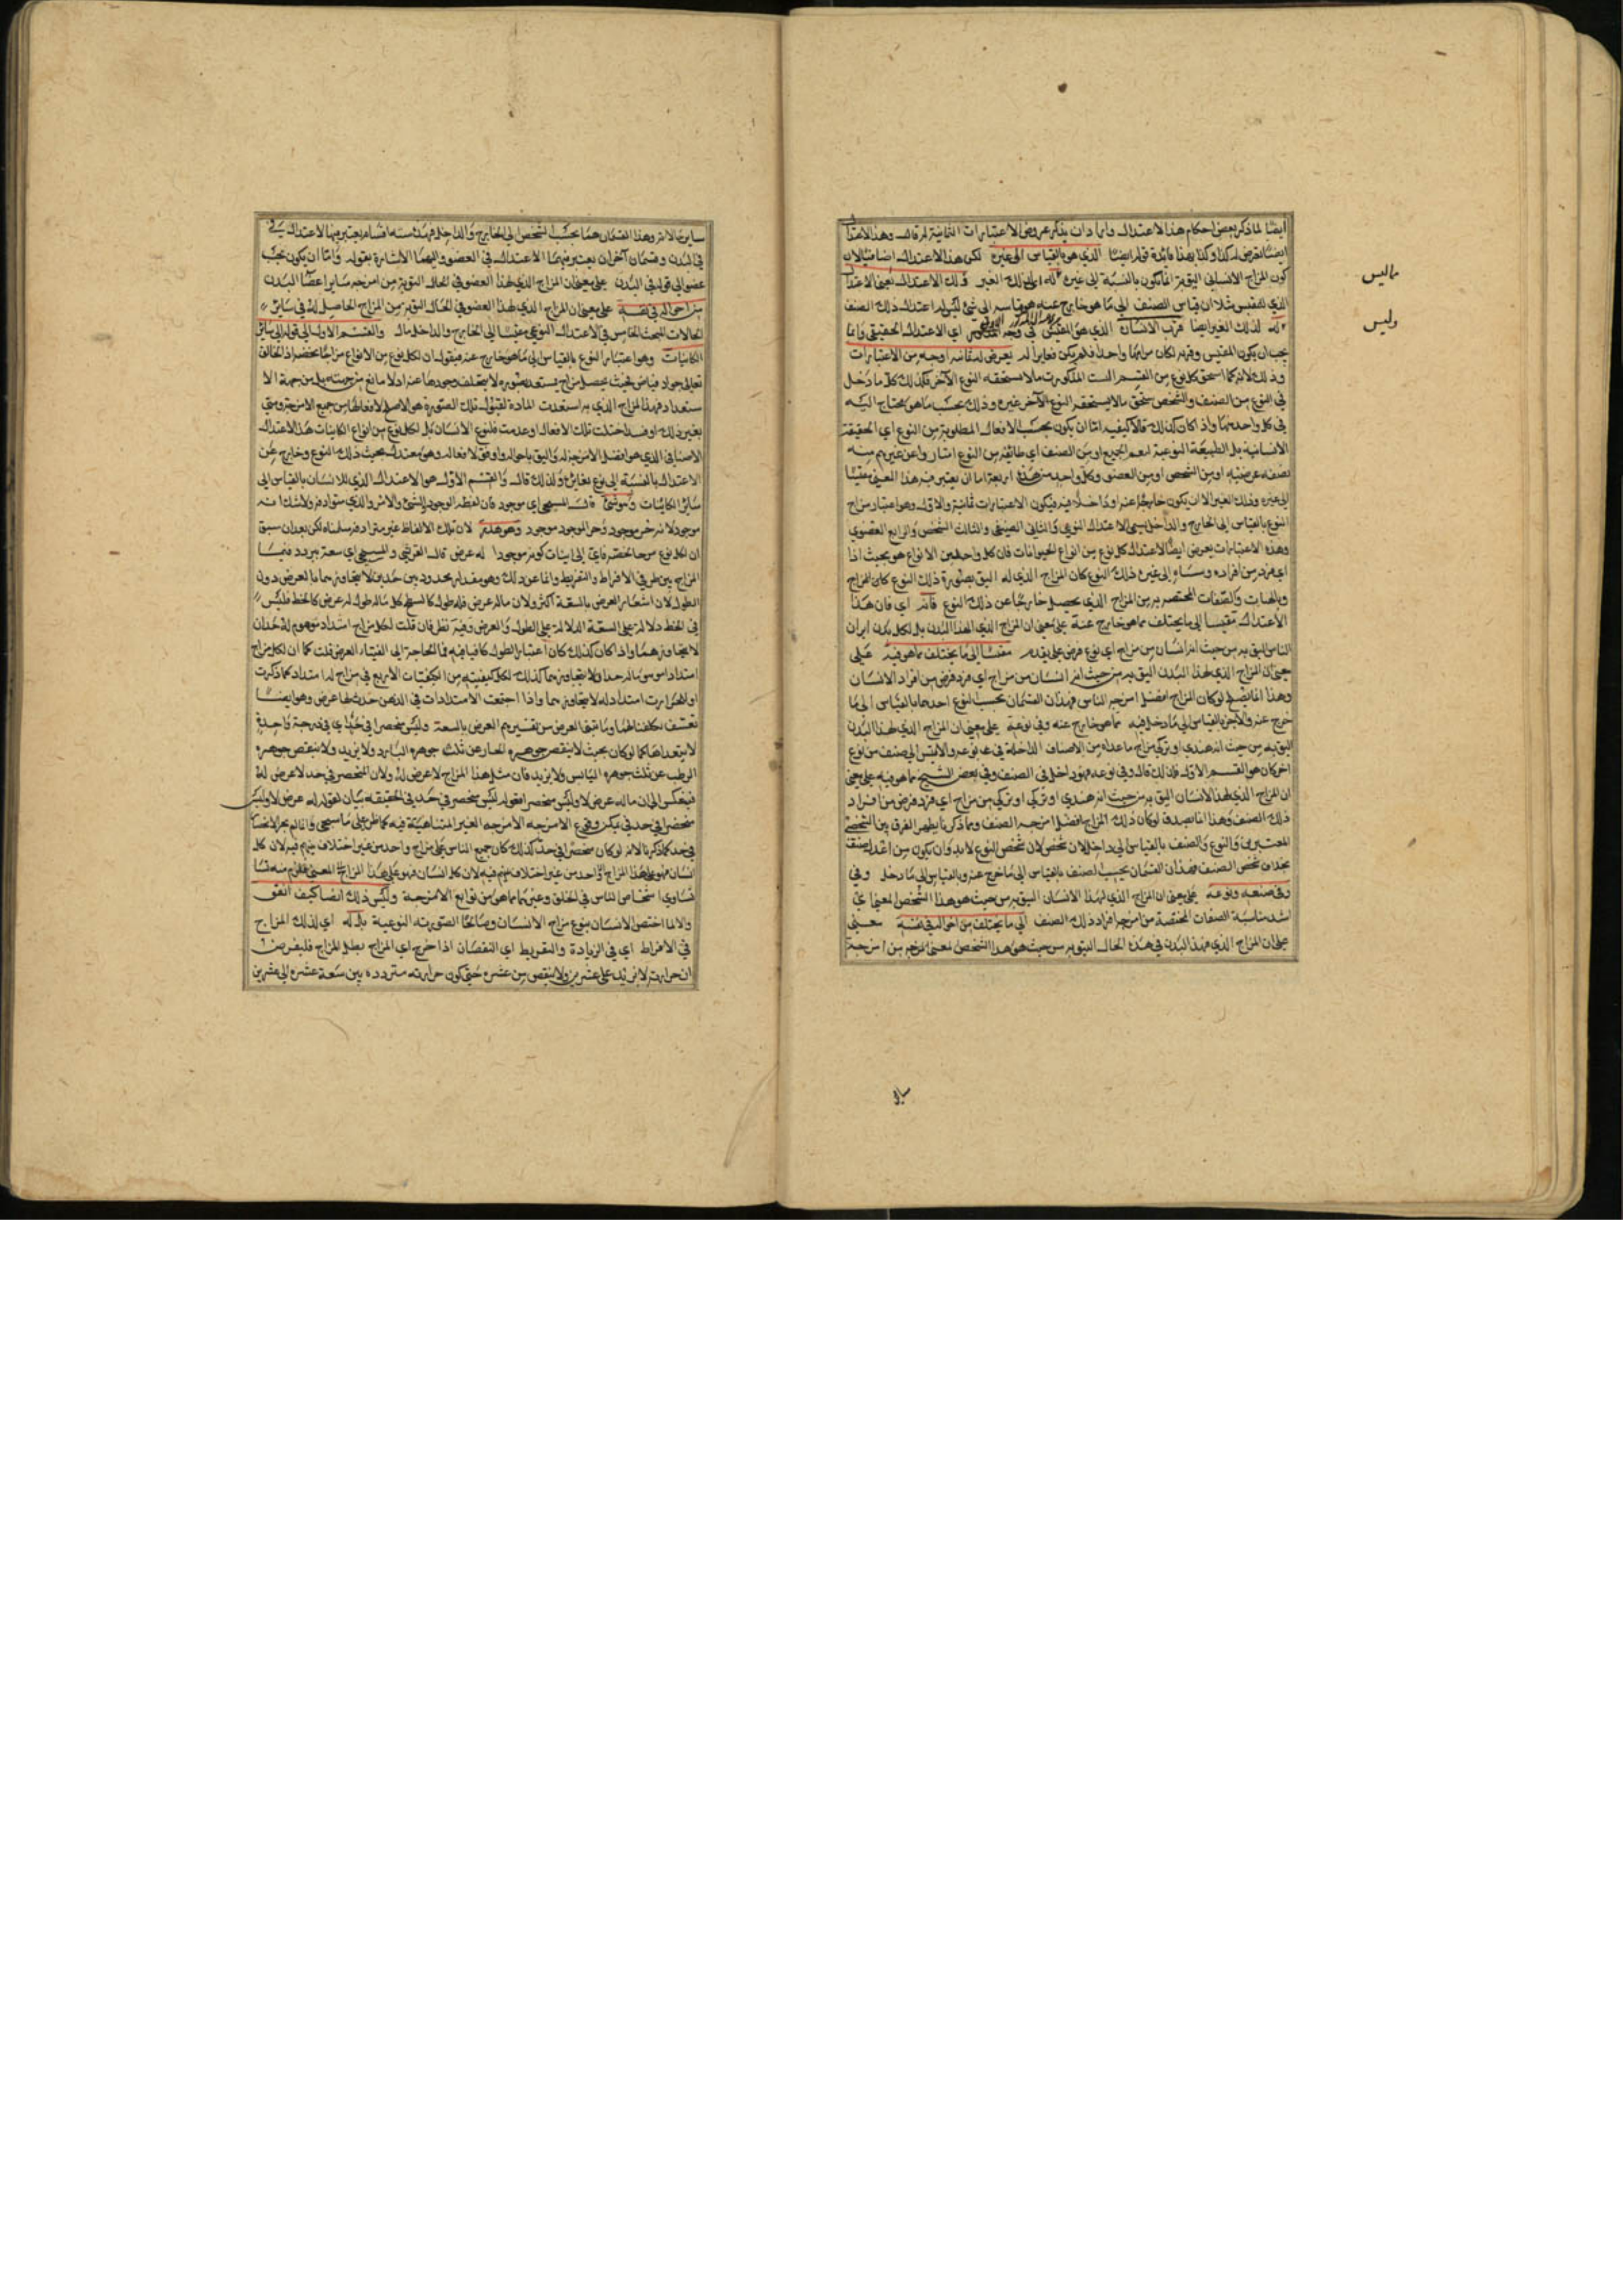 ايضا لما ذكر بعض احكام هذا الاعتدال واراد ان يذكر عروض الاعتبارات الثمانية له قال وهذا الاعتدال
ايضا يعرض له كذا وكذا بهذا فائدة قوله ايضا الذي هو بالقياس الى غيره لكن هذا الاعتدال اضافيا لان
كون المزاج الانساني اليق به انما يكون بالنسبة الى غيره له اي لذلك الغير ذلك الاعتدال يعني الاعتدال
الذي للمقيس مثلا ان قياس الصنف الى ما هو خارج عنه هو قياسه الى شئ ليس له اعتدال ذلك الصنف
لذلك الغير ايضا قرب الانسان الذي هو المقيس اي الاعتدال الحقيقي وانما
يجب ان يكون المقيس وقربه لكان مزاجهما واحدا فلم يكن فعاير له يعرض له ثمانية اوجه من الاعتبارات
وذلك لانه كما استحق كل نوع من القسم الست المذكورة ما لا يستحقه النوع الآخر فكذلك كل ما دخل
في النوع من الصنف والشخص يستحق ما لا يستحقه النوع الآخر غيره وذلك بحسب ما هو محتاج اليه
في كل واحد منهما واذا كان كذلك فالكيفية اما ان يكون بحسب الافعال المطلوبة من النوع اي الحقيقة
الانسانية بل الطبيعة النوعية لعم الجميع او من الصنف اي طائفة من النوع امتاز واعن غيرهم منه
بصفة عرضية او من الشخص او من العضو وكل واحد من هذه اربعة اما ان يعتبر فيه هذا المعنى مقيسا
الى غيره وذلك الغير الا ان يكون خارجا عنه او داخلا فيه فيكون الاعتبارات ثمانية والاول وهو اعتبار مزاج
النوع بالقياس الى الخارج والداخل يسمى الاعتدال النوعي والثاني الصنفي والثالث الشخصي والرابع العضوي
وهذه الاعتبارات يعرض ايضا لاعتدال كل نوع من انواع الحيوانات فان كل واحد من الانواع هو بحيث اذا
اي فرد من افراده وسيا الى غيره ذلك النوع كان المزاج الذي له اليق بصورة ذلك النوع كان المزاج
وبالحسات والصفات المختصة به من المزاج الذي يحصل خارجا عن ذلك النوع فانه اي فان هذا
الاعتدال مقيسا الى ما يختلف مما هو خارج عنه على معنى ان المزاج الذي لهذا البدن بل لكل بدن ابدان
الناس اليق به من حيث انه انسان من مزاج اي نوع فرض على يقدم مقيسا الى ما يختلف مما هو فيه على
معنى ان المزاج الذي لهذا البدن اليق به من حيث انه انسان من مزاج اي فرد فرض من افراد الانسان
وهذا انما يصح لو كان المزاج افضل امزجة الناس فهذان القسمان بحسب النوع احدهما بالقياس الى ما
خرج عنه والآخر بالقياس الى ما دخل فيه مما هو خارج عنه وفي نوعه على معنى ان المزاج الذي لهذا البدن
اليق به من حيث انه هندي او تركي من مزاج ما عداه من الاصناف الداخلة في نوعه والا ليس الى صنف من نوع
اخر كان هو القسم الاول فلذلك قال وفي نوعه فهو داخل في الصنف وفي بعض النسخ مما هو فيه على معنى
ان المزاج الذي لهذا الانسان اليق به من حيث انه هندي او تركي من مزاج اي فرد فرض من افراد
ذلك الصنف وهذا انما يصدق لو كان ذلك المزاج افضل امزجة الصنف وبما ذكرنا يظهر الفرق بين الشخص
المعتبر من النوع والصنف بالقياس الى داخل لان شخص النوع لابد وان يكون من اعدل صنف
بخلاف شخص الصنف فهذان القسمان بحسب الصنف بالقياس الى ما خرج عنه وبالقياس الى ما دخل وفي
وفي صنفه ونوعه على معنى ان المزاج الذي لهذا الانسان اليق به من حيث هو هذا الشخص المعين اي
اشد مناسبة الصفات المختصة من امزجة افراد ذلك الصنف الى ما يختلف من احواله في نفسه معنى
على ان المزاج الذي لهذا البدن في هذه الحال اليق به من حيث هو هذا الشخص المعين المزاج من امزجة
ماليس
وليس
ساير
سايرة الامر وهذا القسمان هما بحسب الشخص الى الخارج والداخل فهذه ستة اقسام يعتبر فيها الاعتدال
في البدن وقسمان آخران يعتبر فيهما الاعتدال في العضو واليهما الاشارة بقوله واما ان يكون بحسب
عضو الى قوله في البدن على معنى ان المزاج الذي لهذا العضو في الحال اليق به من امزجة ساير اعضا البدن
من احواله في نفسه على معنى ان المزاج الذي لهذا العضو في الحال اليق به من المزاج الحاصل له في ساير
الحالات المبحث الخامس في الاعتدال النوعي مقيسا الى الخارج والداخل قال والقسم الاول الى قوله الى ساير
الكاينات وهو اعتبار النوع بالقياس الى ما هو خارج عنه فيقول ان لكل نوع من الانواع مزاجا يخصه اذ الخالق
تعالى جواد فياض بحيث يحصل مزاج يستعد لصورة لا يتخلف وجودها عنه اذ لا مانع من جهته بل من جهة الا
ستعداد فهذا المزاج الذي به استعدت المادة لقبول تلك الصورة هو الاصلح لافعالها من جميع الامزجة ومتى
تغير ذلك او فسد اختلت تلك الافعال او عدمت فلنوع الانسان بل لكل نوع من انواع الكاينات هذا الاعتدال
الاضافي الذي هو افضل الامزجة له واليق باحواله واوفق لافعاله وهو معتدل بحيث ذلك النوع وخارج عن
الاعتدال بالنسبة الى نوع يغايره ولذلك قال والقسم الاول هو الاعتدال الذي للانسان بالقياس الى
ساير الكاينات وهو شئ قال المسيحي اي موجود فان لفظه الوجود والشئ والامر والذي سوادفه ولا شك انه
موجود لانه جزء موجود وجزء الموجود موجود وهو هذا لان تلك الالفاظ غير مترادفة سلمناه لكن بعد ان سبق
ان لكل نوع مزجا يخصه فاي الى اثبات كونه موجودا له عرض قال القرشي والمسيحي اي سعة يتردد فيها
المزاج بين طرفي الافراط والتفريط وانما عن ذلك وهو مقدار محدود بين حدين لا يتجاوزهما بالعرض دون
الطول لان اشعار العرض بالسعة اكثر ولان ماله عرض فله طول كالسطح وكل ماله طول له عرض كالخط فليس
في الخط دلالة على السعة الدلالة على الطول والعرض وفيه نظر فان قلت لكل مزاج امتداد موهوم له حدان
لا يتجاوزهما واذا كان كذلك كان اعتبار الطول كافيا فيه فما الحاجة الى القيد العرض قلت كما ان لكل مزاج
امتداد اموسيا له حدا ولا يتجاوزهما كذلك لكل كيفية من الكيفيات الاربع في مزاج له امتداد كما ذكرت
او لحرارة امتداد له لا يتجاوزهما واذا اجتمعت الامتدادات في الذهن حدث لها عرض وهو ايضا
تعسف لكفايتها لها وما ثبتنا العرض من تفسيرهم العرض بالسعة وليس منحصرا في حد اي في درجة واحدة
لا يتعداها كما لو كان بحيث لا ينقص جوهره الحار عن ثلث جوهره البارد ولا يزيد ولا ينقص جوهره
الرطب عن ثلث جوهره اليابس ولا يزيد فان مثل هذا المزاج لا عرض له ولان المنحصر في حد لا عرض له
فينعكس الى ان ماله عرض لا وليس منحصرا فقوله ليس منحصر في حد في الحقيقة بيان لقوله له عرض لا وليس
منحصرا في حد في عكس وقوع الامزجة الامزجة الغير المتناهية فيه كما ظن على ما سيجئ وانما لم يجز الانحصار
في حد كما ذكرنا لانه لو كان منحصرا في حد كذلك كان جميع الناس على مزاج واحد من غير اختلاف منهم فيه لان كل
انسان فهو على هذا المزاج واحد من غير اختلاف منهم فيه لان كل انسان فهو على هذا المزاج المعين فلزم منه
تساوي اشخاص الناس في الخلق وغيرهما مما هي من توابع الامزجة وليس ذلك ايضا كيف اتفق
والا لما اختص الانسان بنوع مزاج الانسان وصالحا الصورته النوعية بل له اي لذلك المزاج
في الافراط اي في الزيادة والتفريط اي النقصان اذا خرج اي المزاج بطل المزاج فليفرض
ان حرارته لا تزيد على عشرين ولا ينقص من عشرة حتى تكون حرارته مترددة بين سعة عشرة الى عشرين